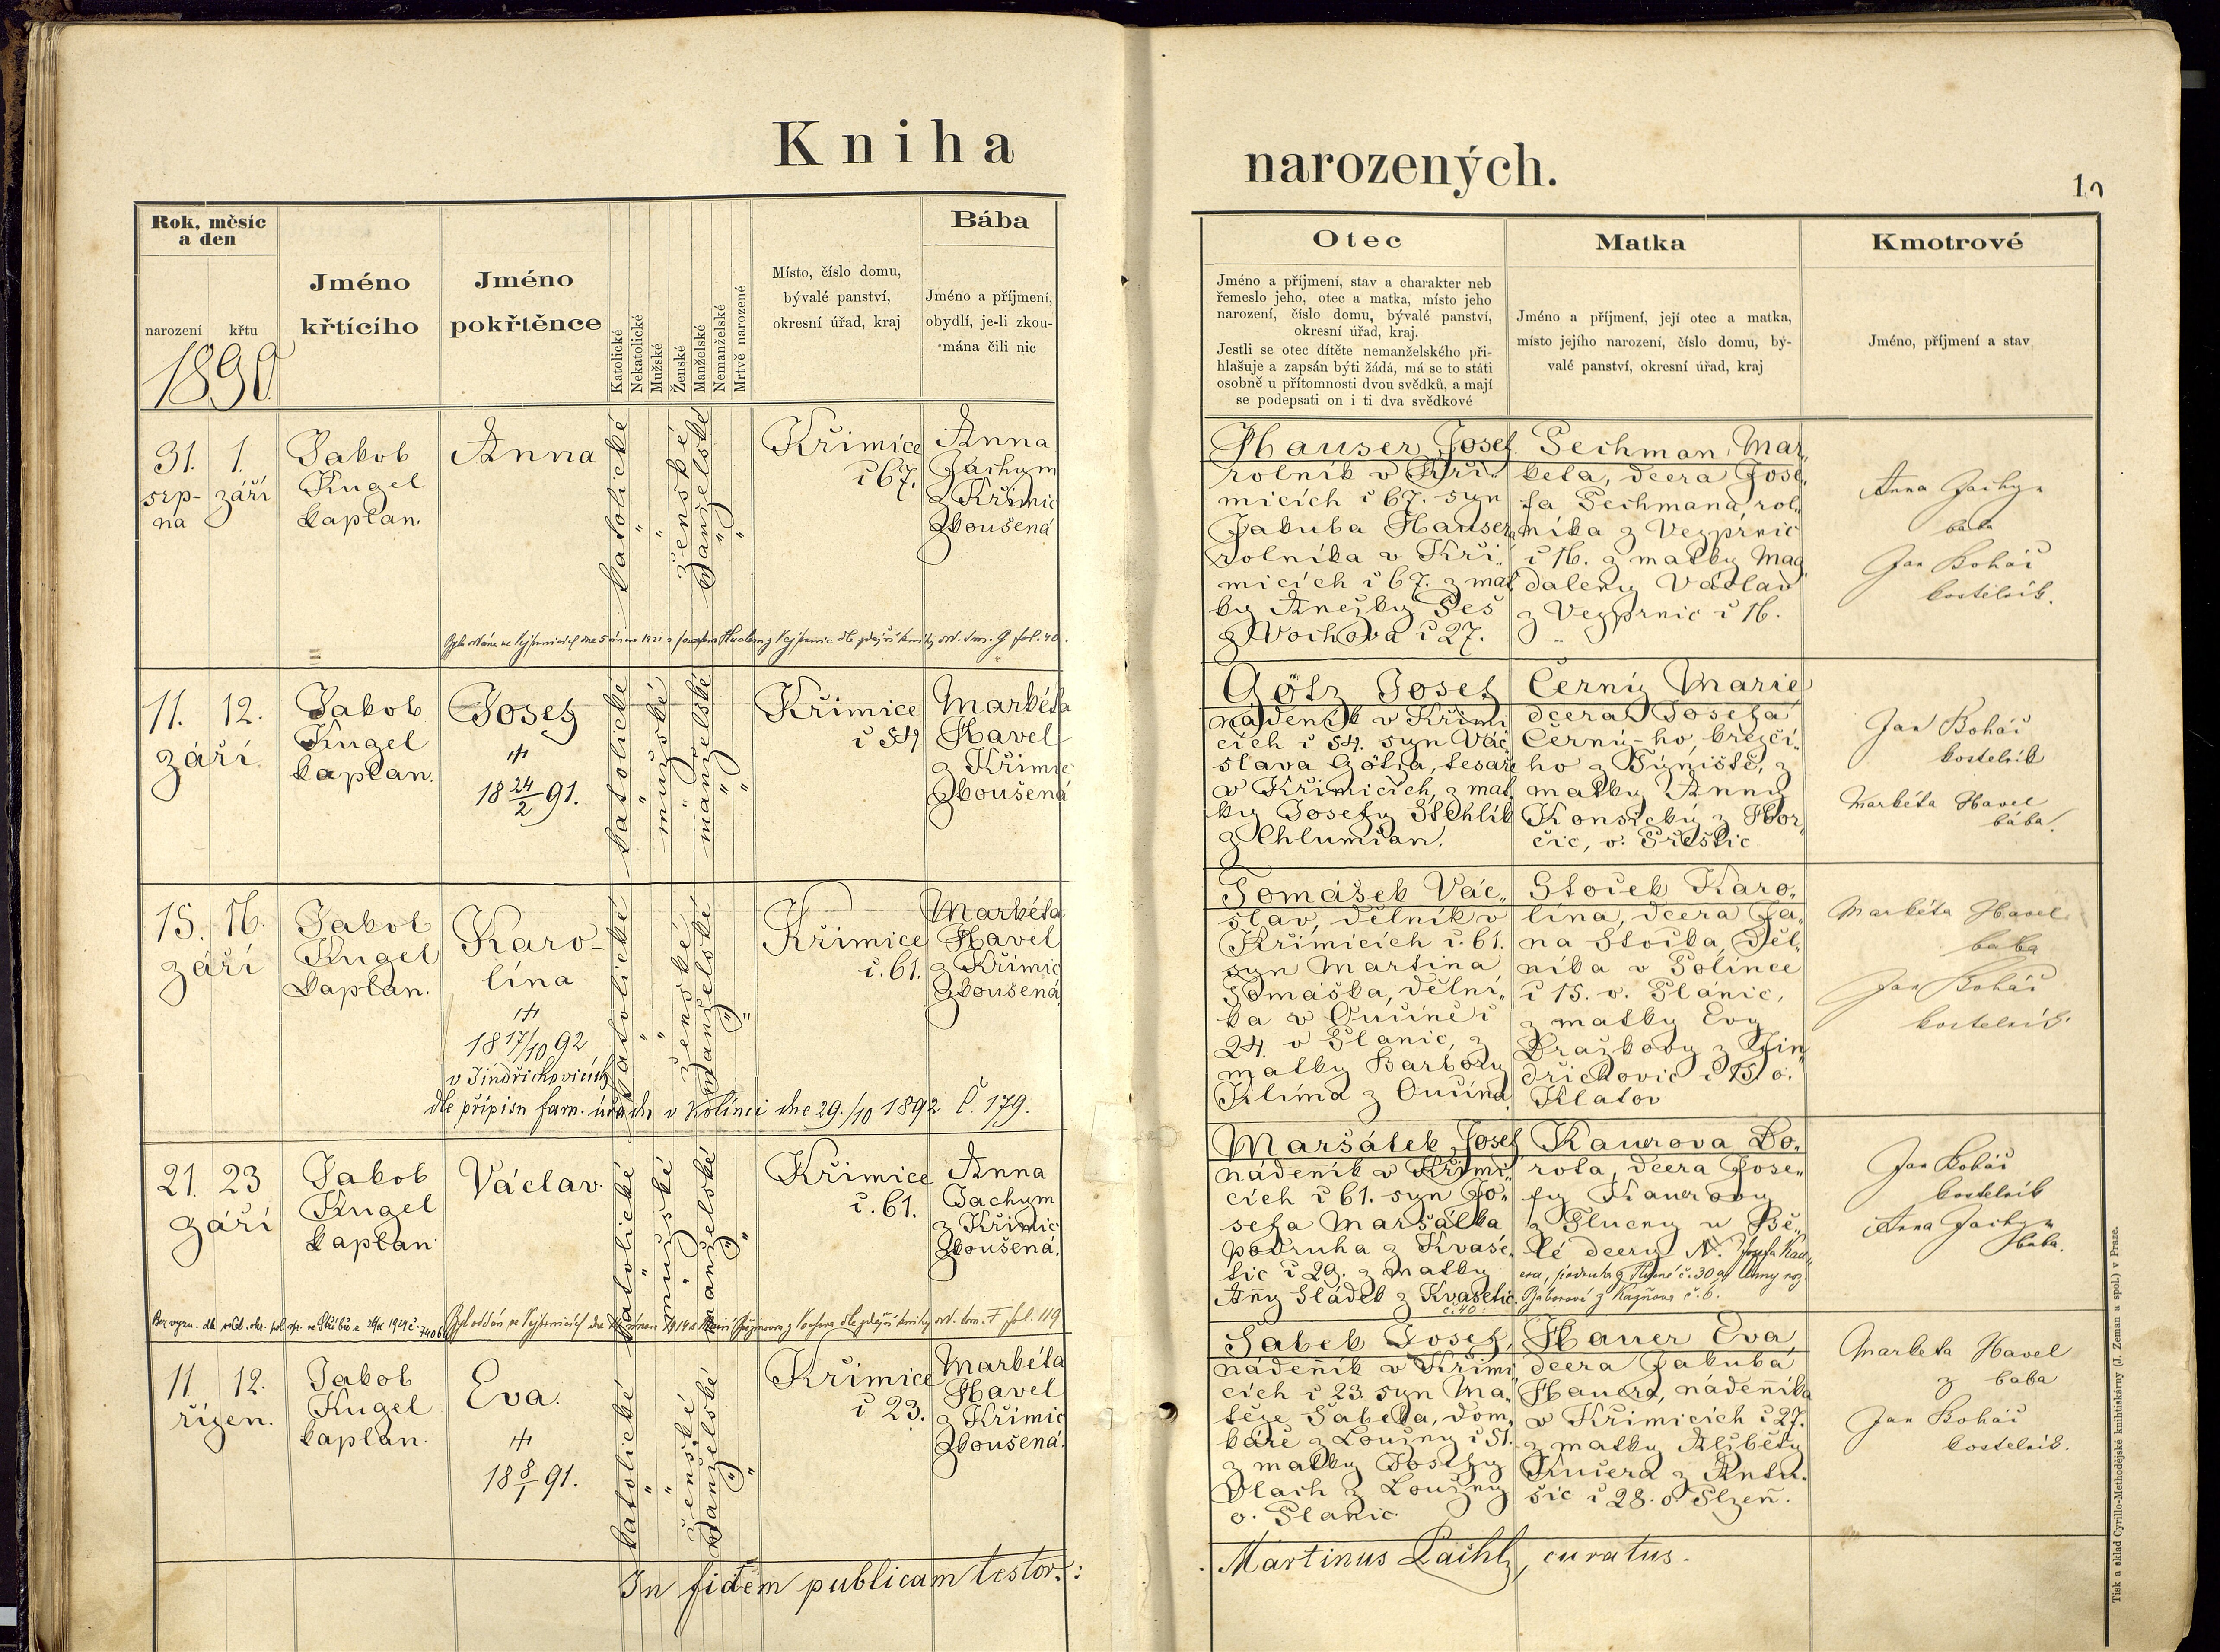 Kniha
narozených.
Rok, měsíc
a den
narození křtu
1890
Jméno
křtícího
Jméno
pokřtěnce
Katolické
Nekatolické
Mužské
Ženské
Manželské
Nemanželské
Mrtvě narozené
Místo, číslo domu,
bývalé panství,
okresní úřad, kraj
Bába
Jméno a příjmení,
obydlí, je-li zkou-
mána čili nic
Otec
Jméno a příjmení, stav a charakter neb
řemeslo jeho, otec a matka, místo jeho
narození, číslo domu, bývalé panství,
okresní úřad, kraj.
Jestli se otec dítěte nemanželského při-
hlašuje a zapsán býti žádá, má se to státi
osobně u přítomnosti dvou svědků, a mají
se podepsati on i ti dva svědkové
Matka
Jméno a příjmení, její otec a matka,
místo jejího narození, číslo domu, bý-
valé panství, okresní úřad, kraj
Kmotrové
Jméno, příjmení a stav
31. 1.
srp- září
na
Jakob
Kugel
kaplan.
Anna
katolické
ženské
manželské
Křimice
č 67.
Anna
Jachym
z Křimic
zkoušená
Hauser Josef
rolník v Kři-
micích č 67. syn
Jakuba Hausera
rolníka v Kři-
micích č 67. z mat
ky Anežky Peš
z Vochova č 27.
Pechman Mar-
keta, dcera Jose-
fa Pechmana, rol-
níka z Vejprnic
č 16. z matky Mag
daleny Václav
z Vejprnic č 16.
Anna Jachym
baba
Jan Boháč
kostelník.
11. 12.
září
Jakob
Kugel
kaplan.
Josef
18 24/2 91.
katolické
mužské
manželské
Křimice
č 54
Markéta
Havel
z Křimic
zkoušená
Götz Josef
nádeník v Křimi
cích č 54. syn Vác
slava Götza, tesaře
v Křimicích, z mat
ky Josefy Stehlík
z Chlumčan.
Černý Marie
dcera Josefa
Černý-ho, krejčí-
ho z Týniště, z
matky Anny
Konsický z Hor-
čic, o. Přeštic
Jan Boháč
kostelník
Markéta Havel
bába.
15. 16.
září
Jakob
Kugel
kaplan.
Karo-
lína
18 17/10 92
v Jindřichovicích
dle přípisu farn. úřadu v Kolinci dne 29./10 1892 č. 179.
katolické
ženské
manželské
Křimice
č. 61.
Markéta
Havel
z Křimic
zkoušená
Tomášek Vác-
slav, dělník v
Křimicích č. 61.
syn Martina
Tomáška, dělní-
ka v Oučíně č
24. o Planic, z
matky Barbory
Klíma z Oučína
Stoček Karo-
lína, dcera Ja-
na Stočka, děl-
níka v Kolinec
č 15. o. Plánic,
z matky Evy
Dražkovy z Jin
dřichovic č 15. o.
Klatov
Markéta Havel
baba
Jan Boháč
kostelník
21. 23
září
Jakob
Kugel
kaplan
Václav.
katolické
mužské
manželské
Křimice
č. 61.
Anna
Jachym
z Křimic
zkoušená.
Maršálek Josef
nádenník v Křimi
cích č 61. syn Jo-
sefa Maršálka
podruha z Kvaše-
tic č 29. z matky
Anny Sládek z Kvasetic
č. 40.
Kaurova Do-
rota, dcera Jose-
fy Kaurovy
z Hlucny u Bě-
lé dcery N. Josefa Kau-
era, podruha z Hlucné č. 30 a Anny roz.
Jan Boháč
kostelník
Anna Jachym
baba.
11 12.
říjen.
Jakob
Kugel
kaplan.
Eva.
18 8/1 91.
katolické
ženské
manželské
Křimice
č 23.
Markéta
Havel
z Křimic
zkoušená.
Sabek Josef,
nádenník v Křimi
cích č 23. syn Ma-
těje Sabeka, dom-
káře z Loužny č 51.
z matky Josefy
Vlach z Loužny
o. Planic
Hauer Eva
dcera Jakuba
Hauera, nádenníka
v Křimicích č 27.
z matky Alžběty
Kučera z Antu-
šic č 28. o Plzeň.
Marketa Havel
baba
Jan Boháč
kostelník.
In fidem publicam testor:
Martinus Laichl, curatus.
Tisk a sklad Cyrillo-Methodějské knihtiskárny (J. Zeman a spol.) v Praze.